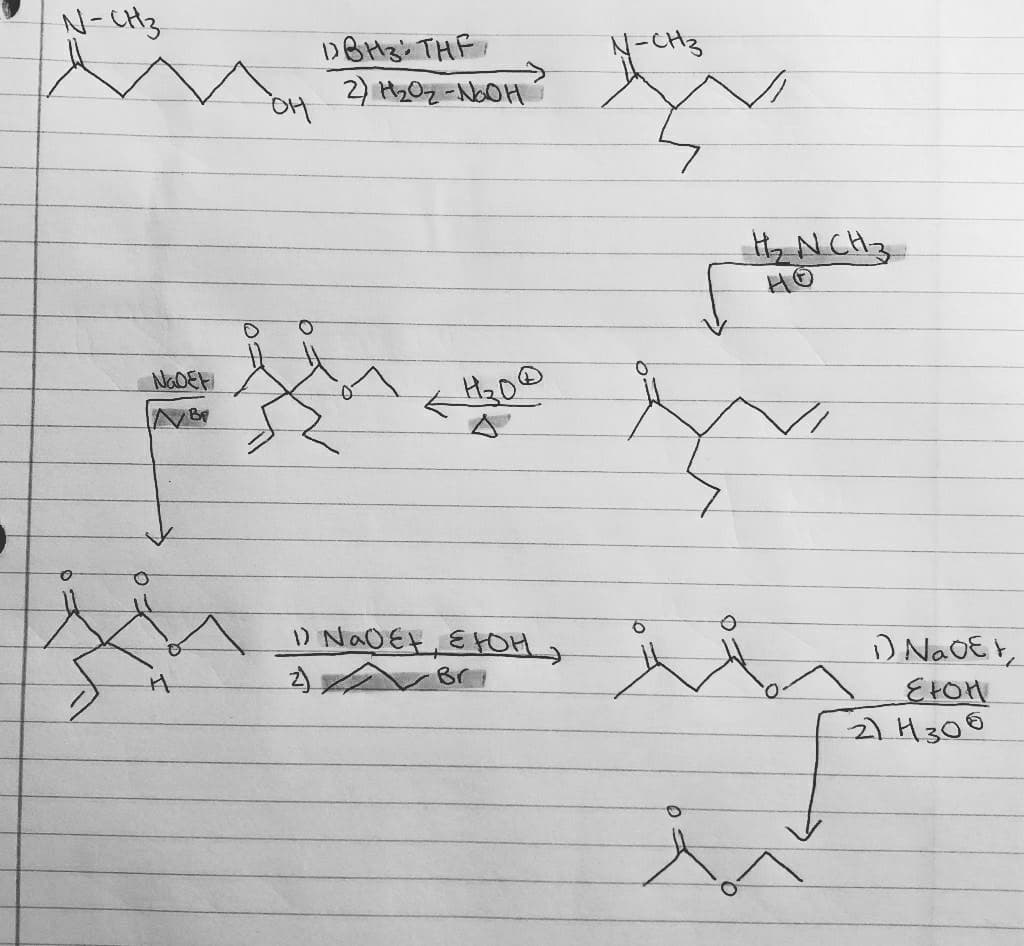 N-CH3
OH
1) BH3: THF
2) H2O2-NaOH
N-CH3
H2NCH3
H⊕
O
O
O
NaOEt
Br
H3O⊕
Δ
O
O
O
O
H
1) NaOEt, EtOH
2) Br
O
O
O
1) NaOEt,
EtOH
2) H3O⊕
O
O